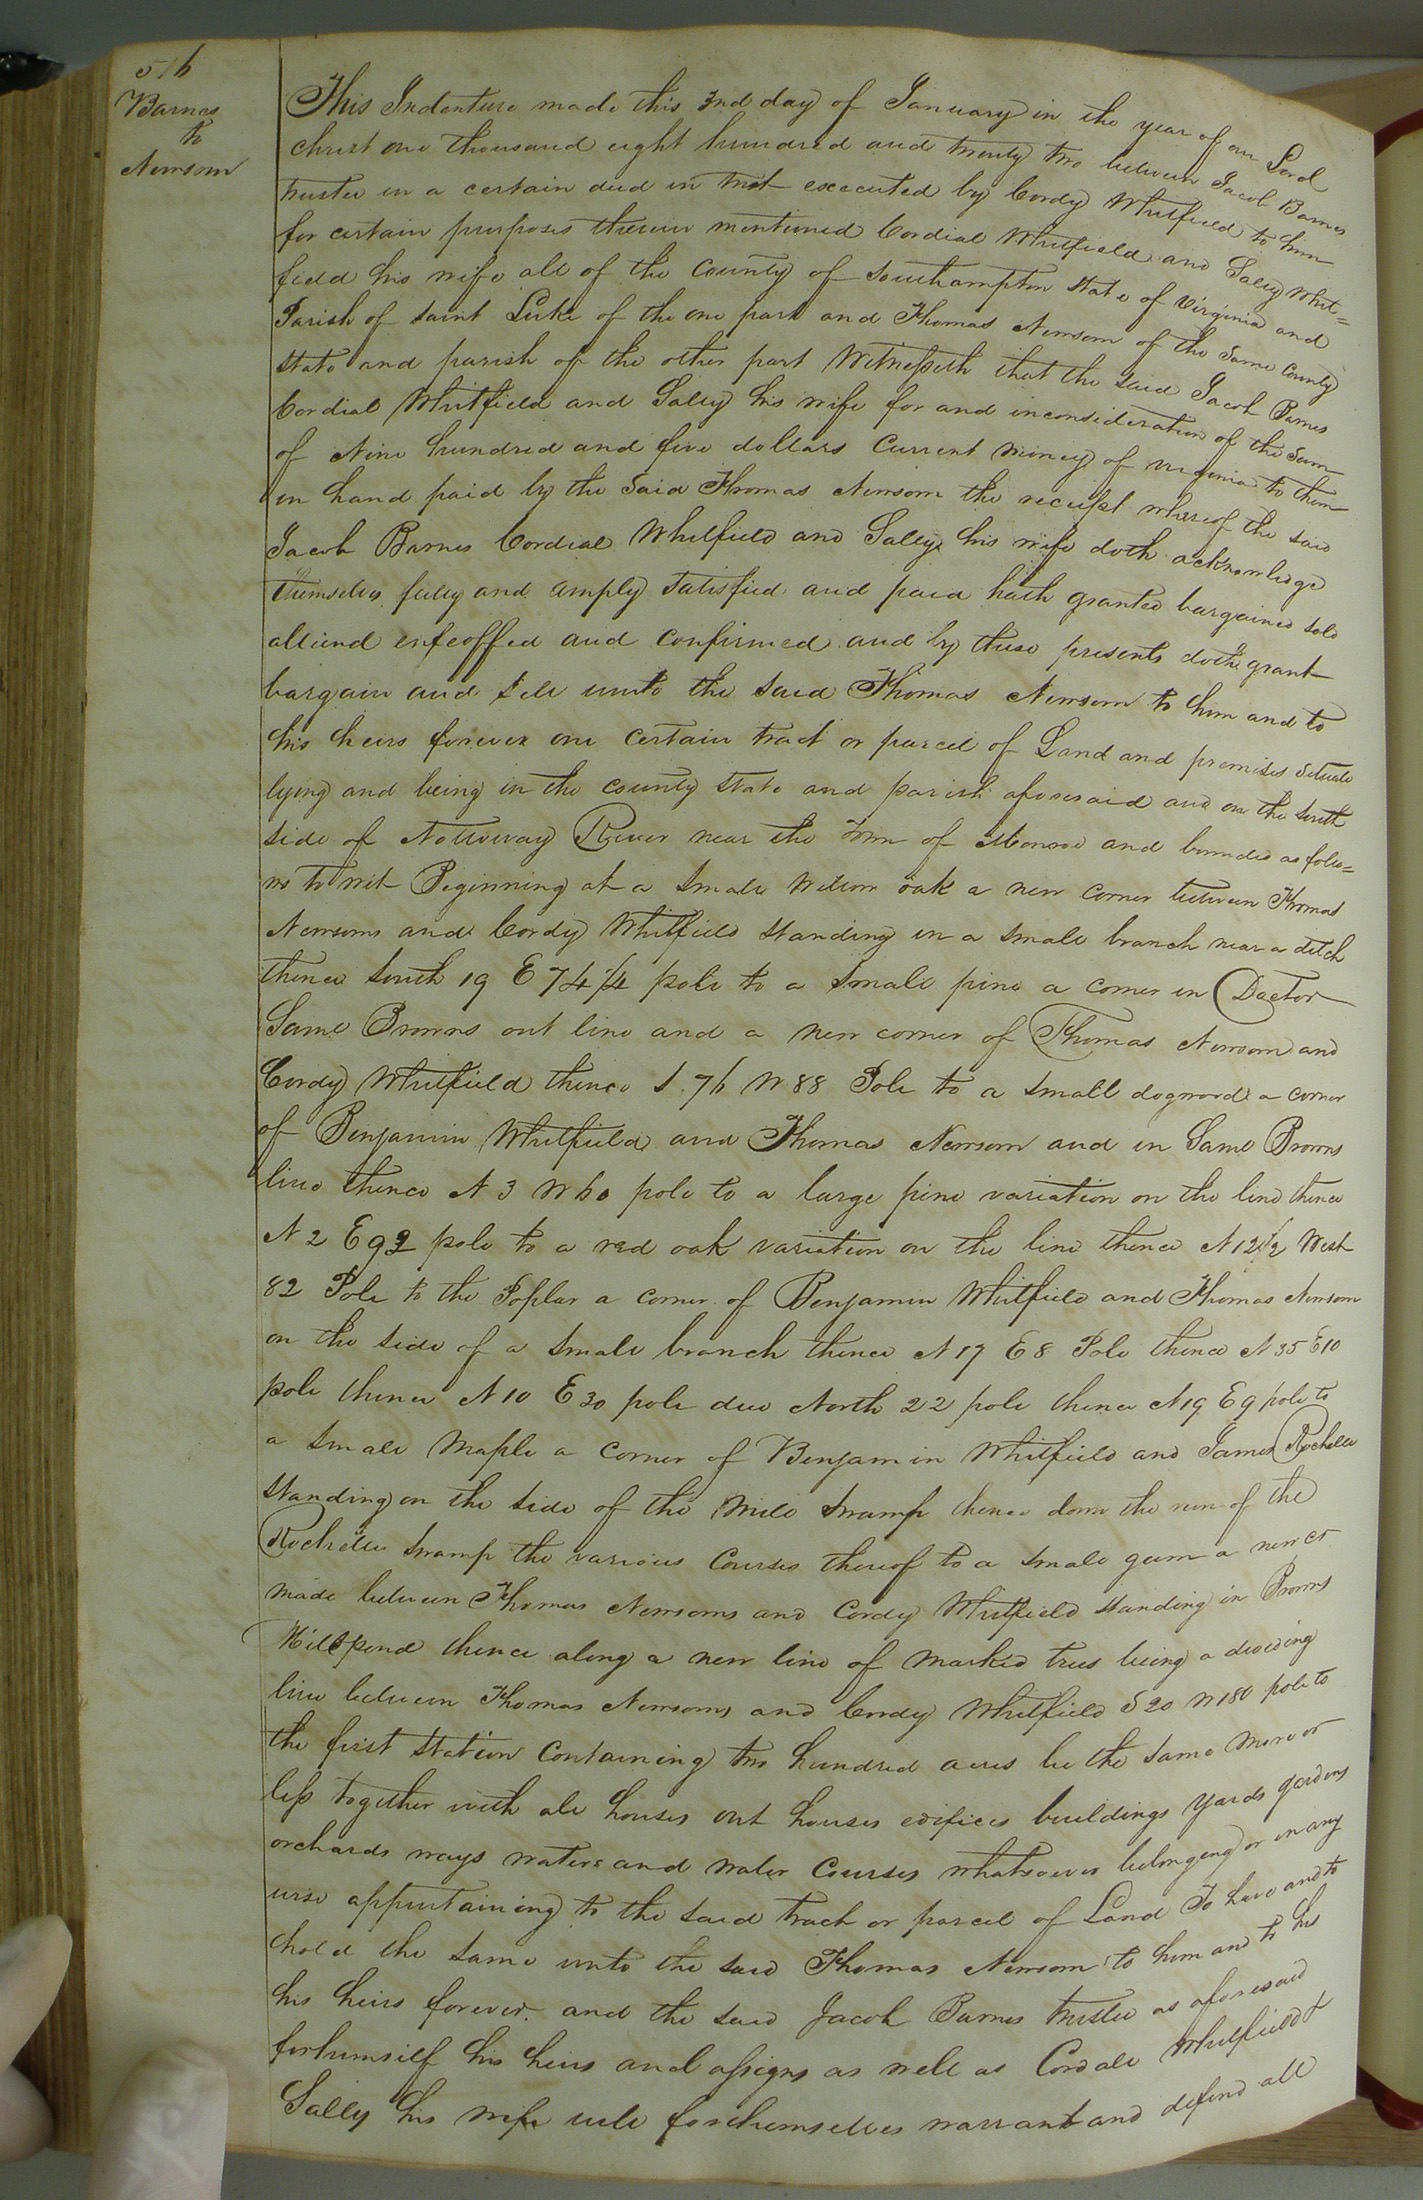 516
Barnes
to
Newsom
This Indenture made this 2nd day of January in the year of our Lord
christ one thousand eight hundred and twenty two between Jacob Barnes
trustee in a certain deed in trust executed by Cordy Whitfield to him
for certain purposes therein mentioned Cordial Whitfield and Sally Whit=
field his wife all of the County of Southampton State of Virginia and
Parish of Saint Luke of the one part and Thomas Newsom of the same County
State and parish of the other part Witnesseth that the said Jacob Barnes
Cordial Whitfield and Sally his wife for and inconsideration of the Sum
of Nine hundred and five dollars Current money of virginia to them
in hand paid by the Said Thomas Newsom the receipt whereof the said
Jacob Barnes Cordial Whitfield and Sally his wife doth acknowledge
themselves fully and amply Satisfied and paid hath granted bargained sold
aliend enfeoffed and confirmed and by these presents doth grant
bargain and Sell unto the said Thomas Newsom to him and to
his heirs forever one certain tract or parcel of Land and premises Situate
lying and being in the county State and parish aforesaid and on the South
side of Nottoway River near the Town of Monroe and bounded as follo=
ws to wit Beginning at a Small Willow oak a new corner between Thomas
Newsoms and Cordy Whitfield Standing in a Small branch near a ditch
thence South 19 E 74 1/4 pole to a Small pine a corner in Doctor
Saml Browns out line and a new corner of Thomas Newsom and
Cordy Whitfield thence S. 76 W 88 Pole to a Small dogwood a corner
of Benjamin Whitfield and Thomas Newsom and in Saml Browns
line thence N 3 W 60 pole to a large pine variation on the line thence
N 2 E 92 pole to a red oak variation on the line thence N 12 1/2 West
82 Pole to the Poplar a corner of Benjamin Whitfield and Thomas Newsom
on the Side of a Small branch thence N 17 E 8 Pole thence N 35 E 10
pole thence N 10 E 30 pole due North 22 pole thence N 19 E 9 pole to
a Small Maple a corner of Benjamin Whitfield and James Rochelle
Standing on the Side of the Mill Swamp thence down the run of the
Rochelle Swamp the various Courses thereof to a Small gum a new cr
made between Thomas Newsoms and Cordy Whitfield Standing in Browns
Millpond thence along a new line of marked trees being a dividing
line between Thomas Newsoms and Cordy Whitfield S 20 W 180 pole to
the first Station Containing two hundred acres be the Same more or
less together with all houses out houses edifices buildings yards gardens
orchards ways waters and water Courses whatsoever belonging or in any
wise appurtaining to the said track or parcel of Land To have and to
hold the Same unto the said Thomas Newsom to him and to his
his heirs forever and the said Jacob Barnes trustee as aforesaid
forhimself his heirs and assigns as well as Cordale Whitfield &
Sally his wife will forthemselves warrant and defend all